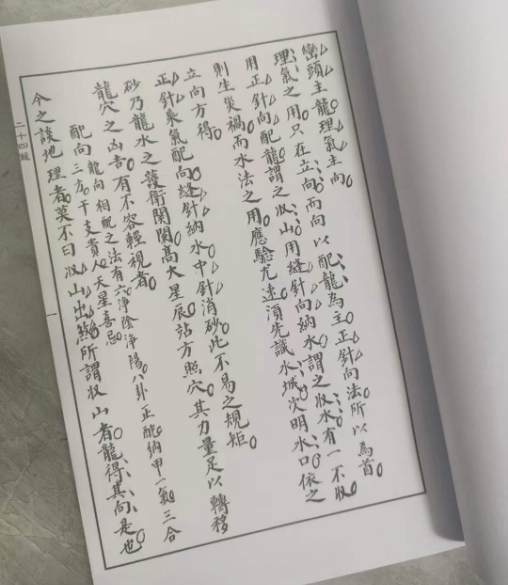 巒頭主龍理氣主向
理氣之用只在立向而向以配龍為主正針向法所以為首
用正針向配龍謂之收山用縫針向納水謂之收水有一不收
則生災禍而水法之用應驗尤速須先識水城次明水口依之
立向方得
正針乘氣配向縫針納水中針消砂此不易之規矩
砂乃龍水之護衛關闌高大星辰站方照穴其力量足以轉移
龍穴之山吉有不容輕視者
配向 龍向相配之法有六淨陰淨陽八卦正配納甲一氣三合
三方干支貴人天星喜忌
今之談地理者莫不曰收山出煞所謂收山者龍得其向是也
二十四